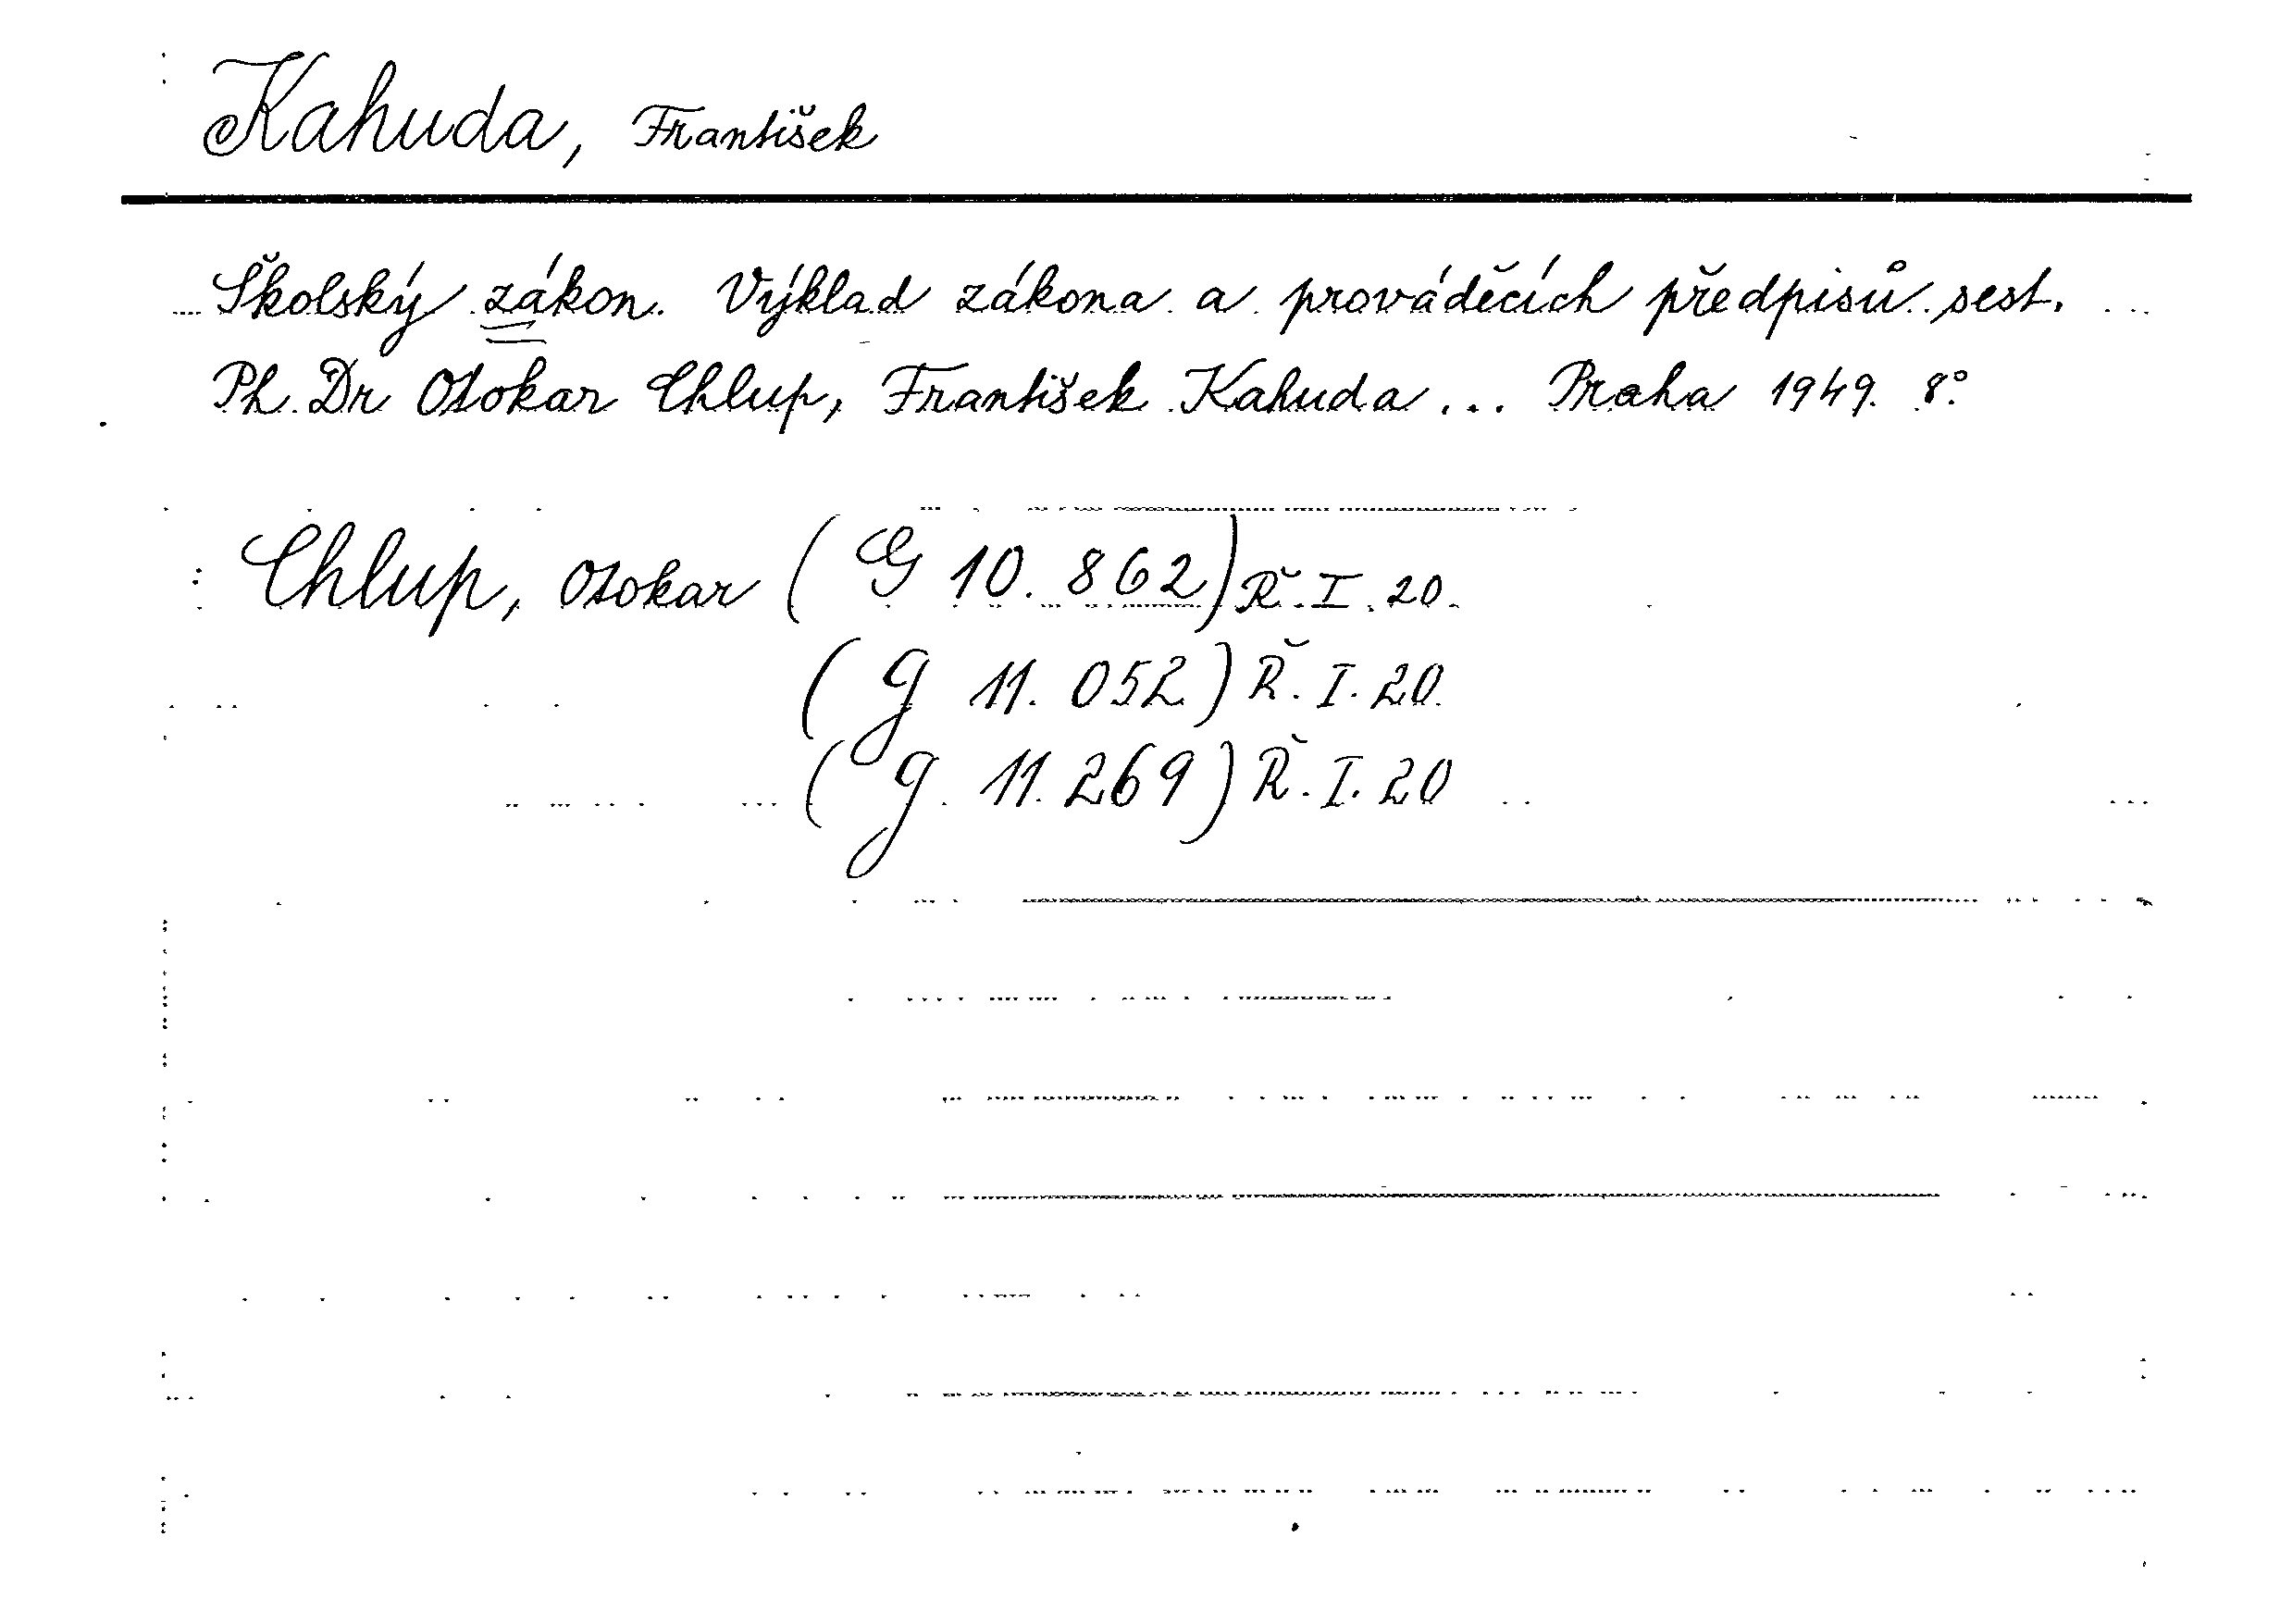 Kahuda, František
Školský zákon. Výklad zákona a prováděcích předpisů sest.
Ph. Dr Otokar Chlup, František Kahuda ... Praha 1949. 8°.
Chlup, Otokar (G 10.862) Ř.I.20.
(g 11.052) Ř.I.20.
(g. 11.269) Ř.I.20